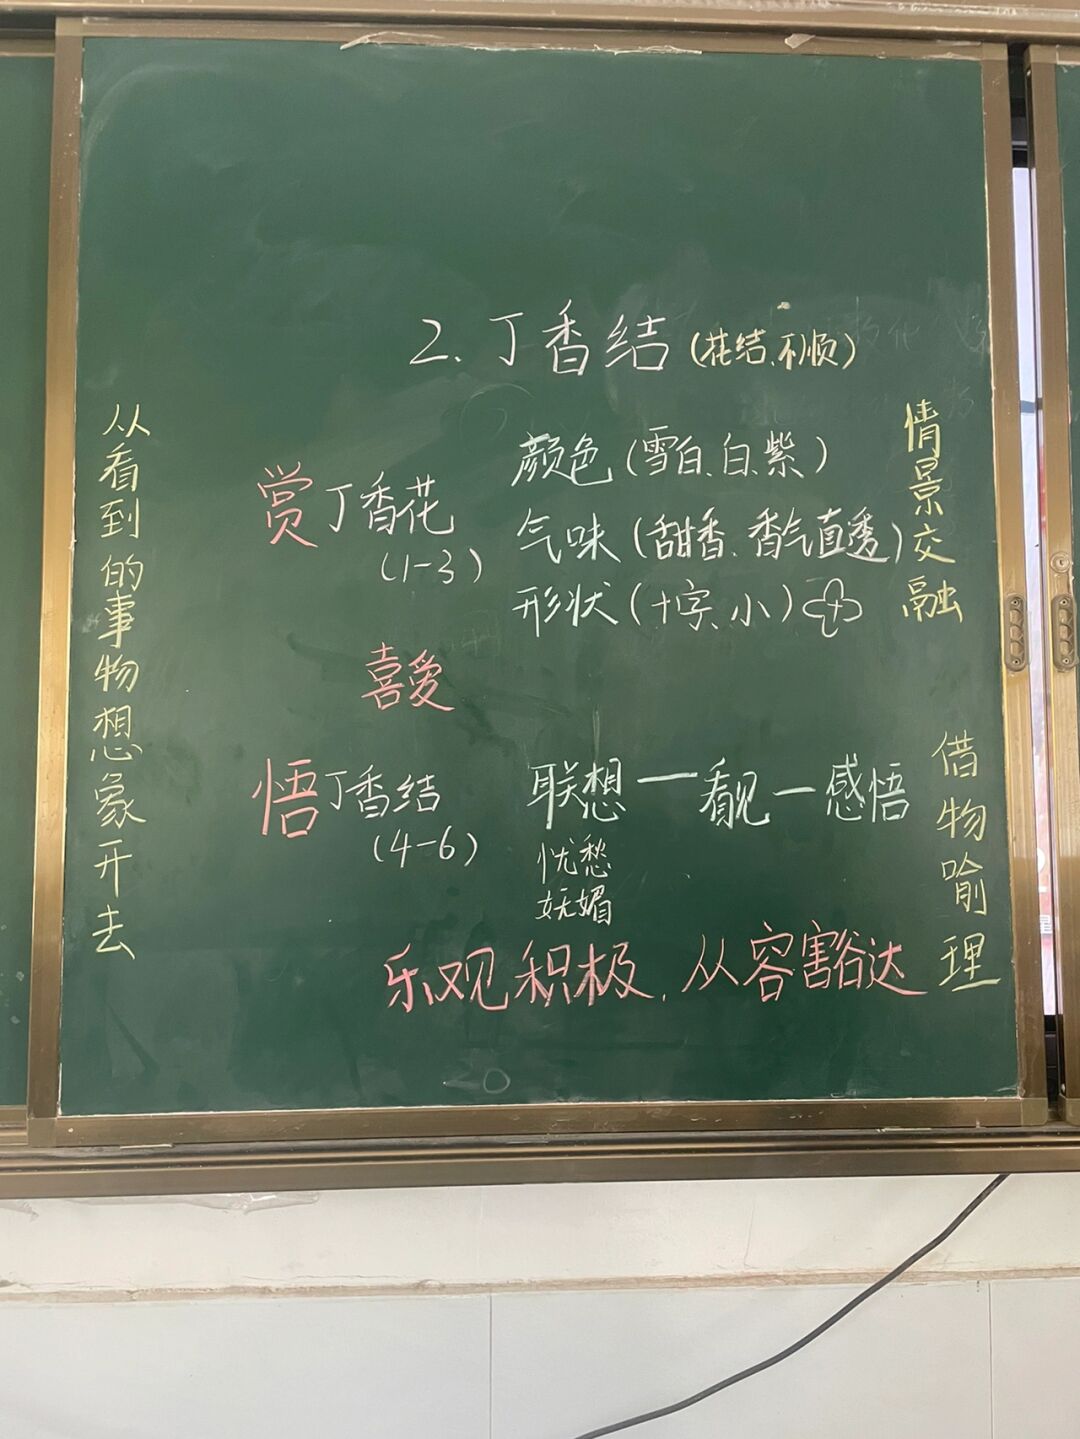 2.丁香结(花结、不顺)
从看到的事物想象开去
赏丁香花
(1-3)
颜色(雪白、白、紫)
气味(甜香、香气直透)
形状(十字、小)
情景交融
喜爱
悟丁香结
(4-6)
联想—看见—感悟
忧愁
妩媚
乐观积极,从容豁达
借物喻理